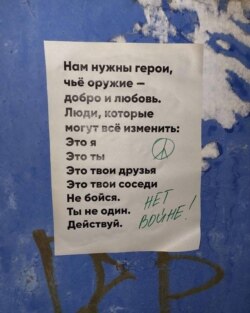 Нам нужны герои,
чьё оружие —
добро и любовь.
Люди, которые
могут всё изменить:
Это я
Это ты
Это твои друзья
Это твои соседи
Не бойся.
Ты не один.
Действуй.
НЕТ
ВОЙНЕ!